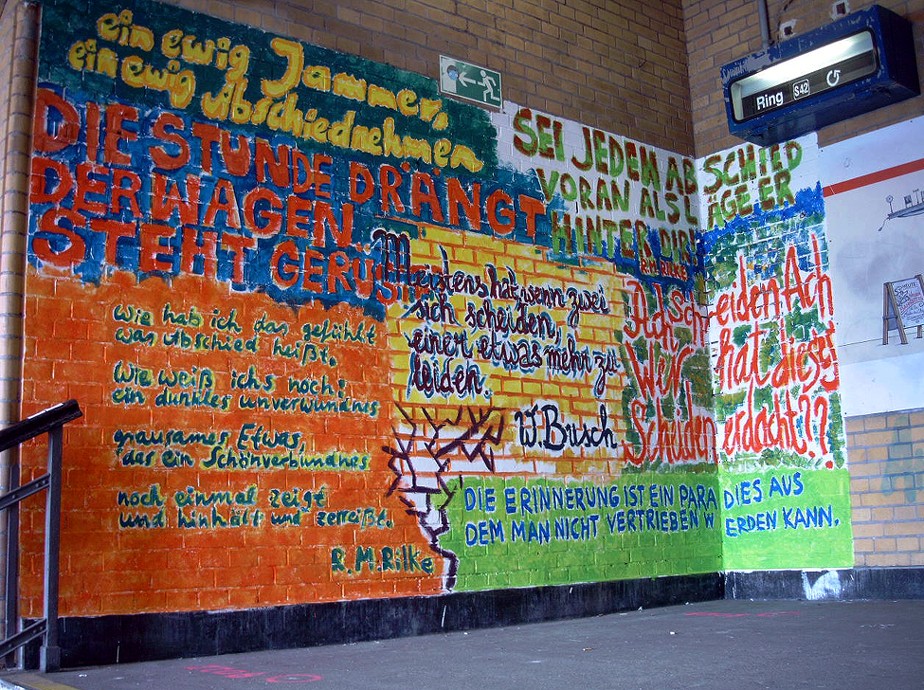 ein ewig Jammer,
ein ewig Abschiednehmen
DIE STUNDE DRÄNGT
DER WAGEN
STEHT GERÜST
SEI JEDEM ABSCHIED
VORAN ALS LÄGE ER
HINTER DIR
R.M. RILKE
Ring S42
Meistens hat, wenn zwei
sich scheiden,
einer etwas mehr zu
leiden.
W.Busch
Ach Scheiden Ach
Wer hat dieses
Scheiden erdacht??
Wie hab ich das gefühlt
was Abschied heißt.
Wie weiß ichs noch:
ein dunkles unverwundnes
grausames Etwas,
das ein Schönverbundnes
noch einmal zeigt
und hinhält und zerreißt.
R.M.Rilke
DIE ERINNERUNG IST EIN PARADIES AUS
DEM MAN NICHT VERTRIEBEN WERDEN KANN.